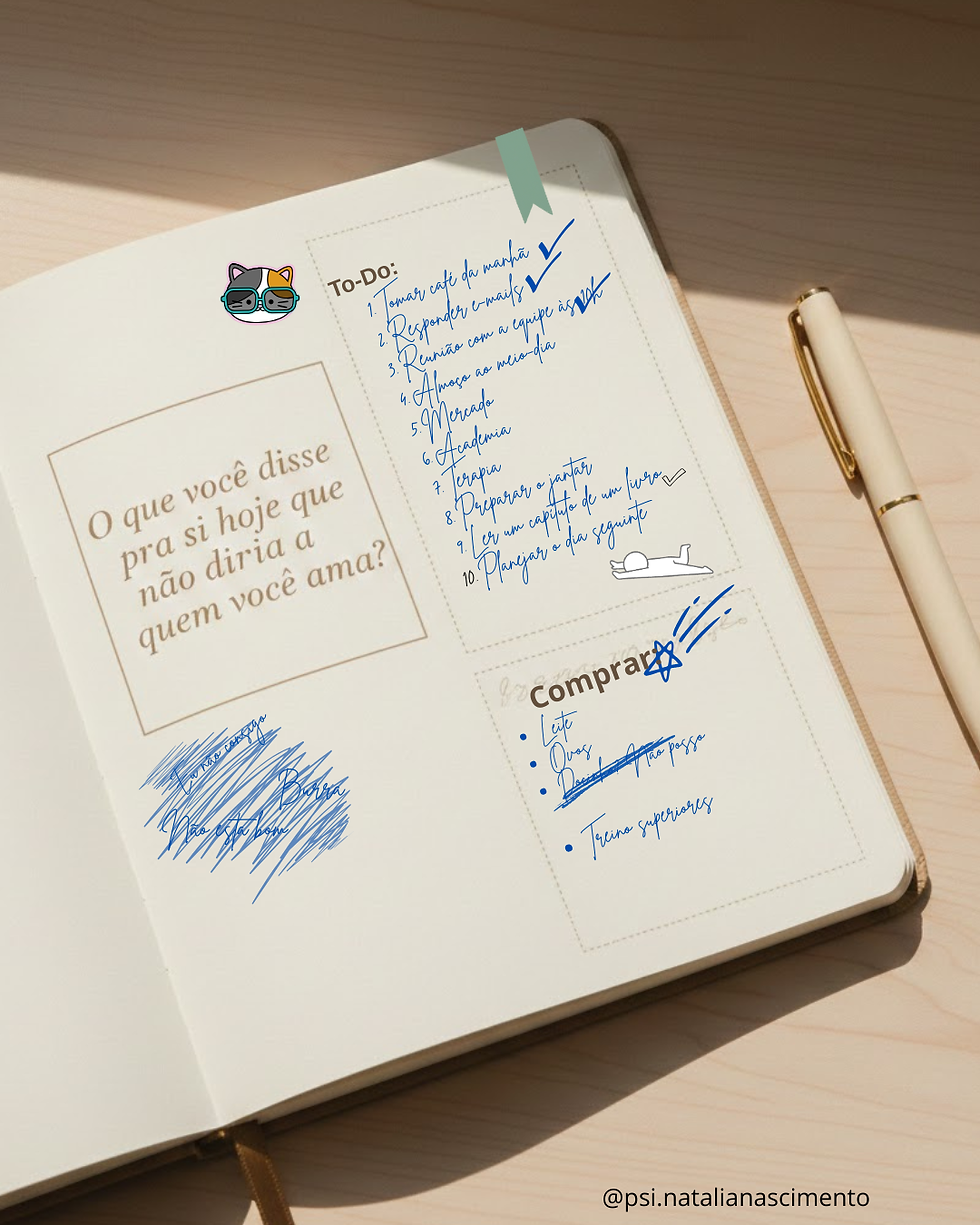 To-Do:
1. Tomar café da manhã
2. Responder e-mails
3. Reunião com a equipe às
4. Almoço ao meio-dia
5. Mercado
6. Academia
7. Terapia
8. Preparar o jantar
9. Ler um capítulo de um livro
10. Planejar o dia seguinte
O que você disse
pra si hoje que
não diria a
quem você ama?
Eu não consigo
Burra
Não está bom
Comprar:
Leite
Ovos
Não posso
Treino superiores
@psi.natalianascimento